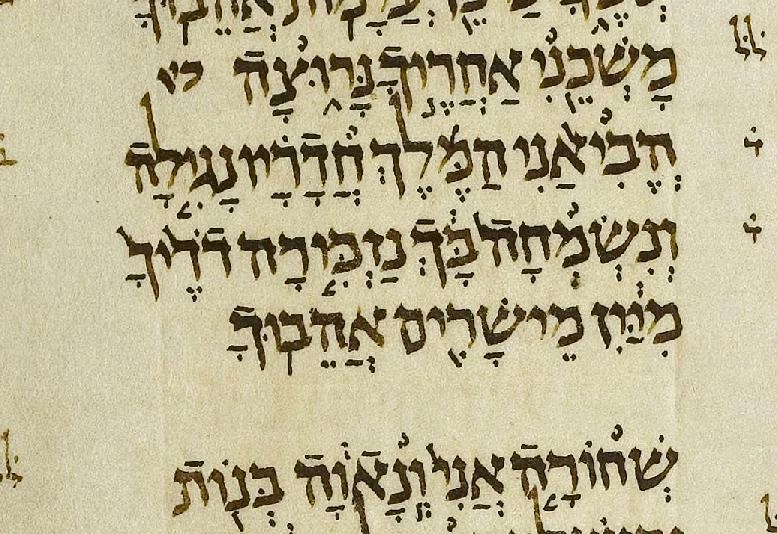 מָשְׁכֵ֖נִי אַחֲרֶ֣יךָ נָּר֑וּצָה
הֱבִיאַ֨נִי הַמֶּ֜לֶךְ חֲדָרָ֗יו נָגִ֤ילָה
וְנִשְׂמְחָה֙ בָּ֔ךְ נַזְכִּ֤ירָה דֹדֶ֙יךָ֙
מִיַּ֔יִן מֵישָׁרִ֖ים אֲהֵבֽוּךָ
שְׁחוֹרָ֤ה אֲנִי֙ וְֽנָאוָ֔ה בְּנ֖וֹת